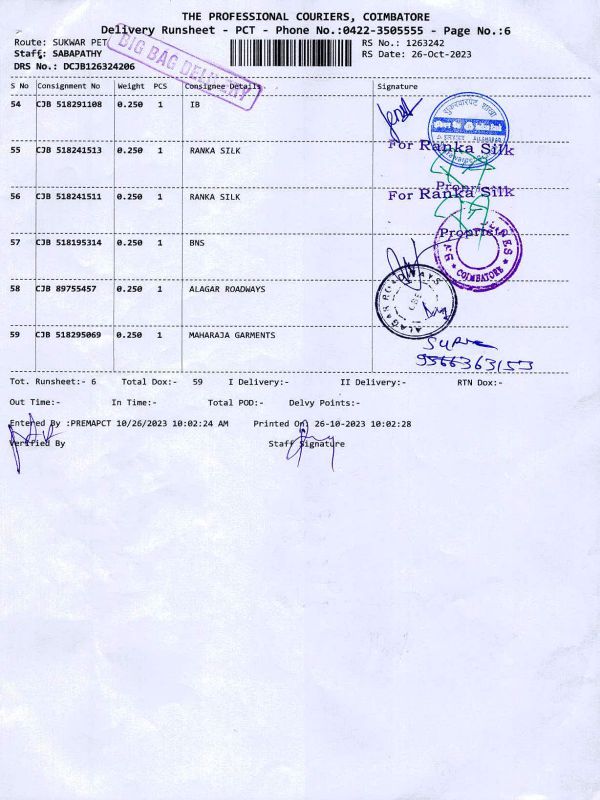 THE PROFESSIONAL COURIERS, COIMBATORE
Delivery Runsheet - PCT - Phone No.:0422-3505555 - Page No.:6
Route: SUKWAR PET
RS No.: 1263242
Staff: SABAPATHY
RS Date: 26-Oct-2023
DRS No.: DCJB126324206
BIG BAG DELIVERY
S No Consignment No Weight PCS Consignee Details Signature
54 CJB 518291108 0.250 1 IB
शुक्रवारपेट शाखा
55 CJB 518241513 0.250 1 RANKA SILK
For Ranka Silk
56 CJB 518241511 0.250 1 RANKA SILK
For Ranka Silk
57 CJB 518195314 0.250 1 BNS
COIMBATORE
58 CJB 89755457 0.250 1 ALAGAR ROADWAYS
ALAGAR ROADWAYS
59 CJB 518295069 0.250 1 MAHARAJA GARMENTS
9366363153
Tot. Runsheet:- 6 Total Dox:- 59 I Delivery:- II Delivery:- RTN Dox:-
Out Time:- In Time:- Total POD:- Delvy Points:-
Entered By :PREMAPCT 10/26/2023 10:02:24 AM Printed On: 26-10-2023 10:02:28
Verified By Staff Signature